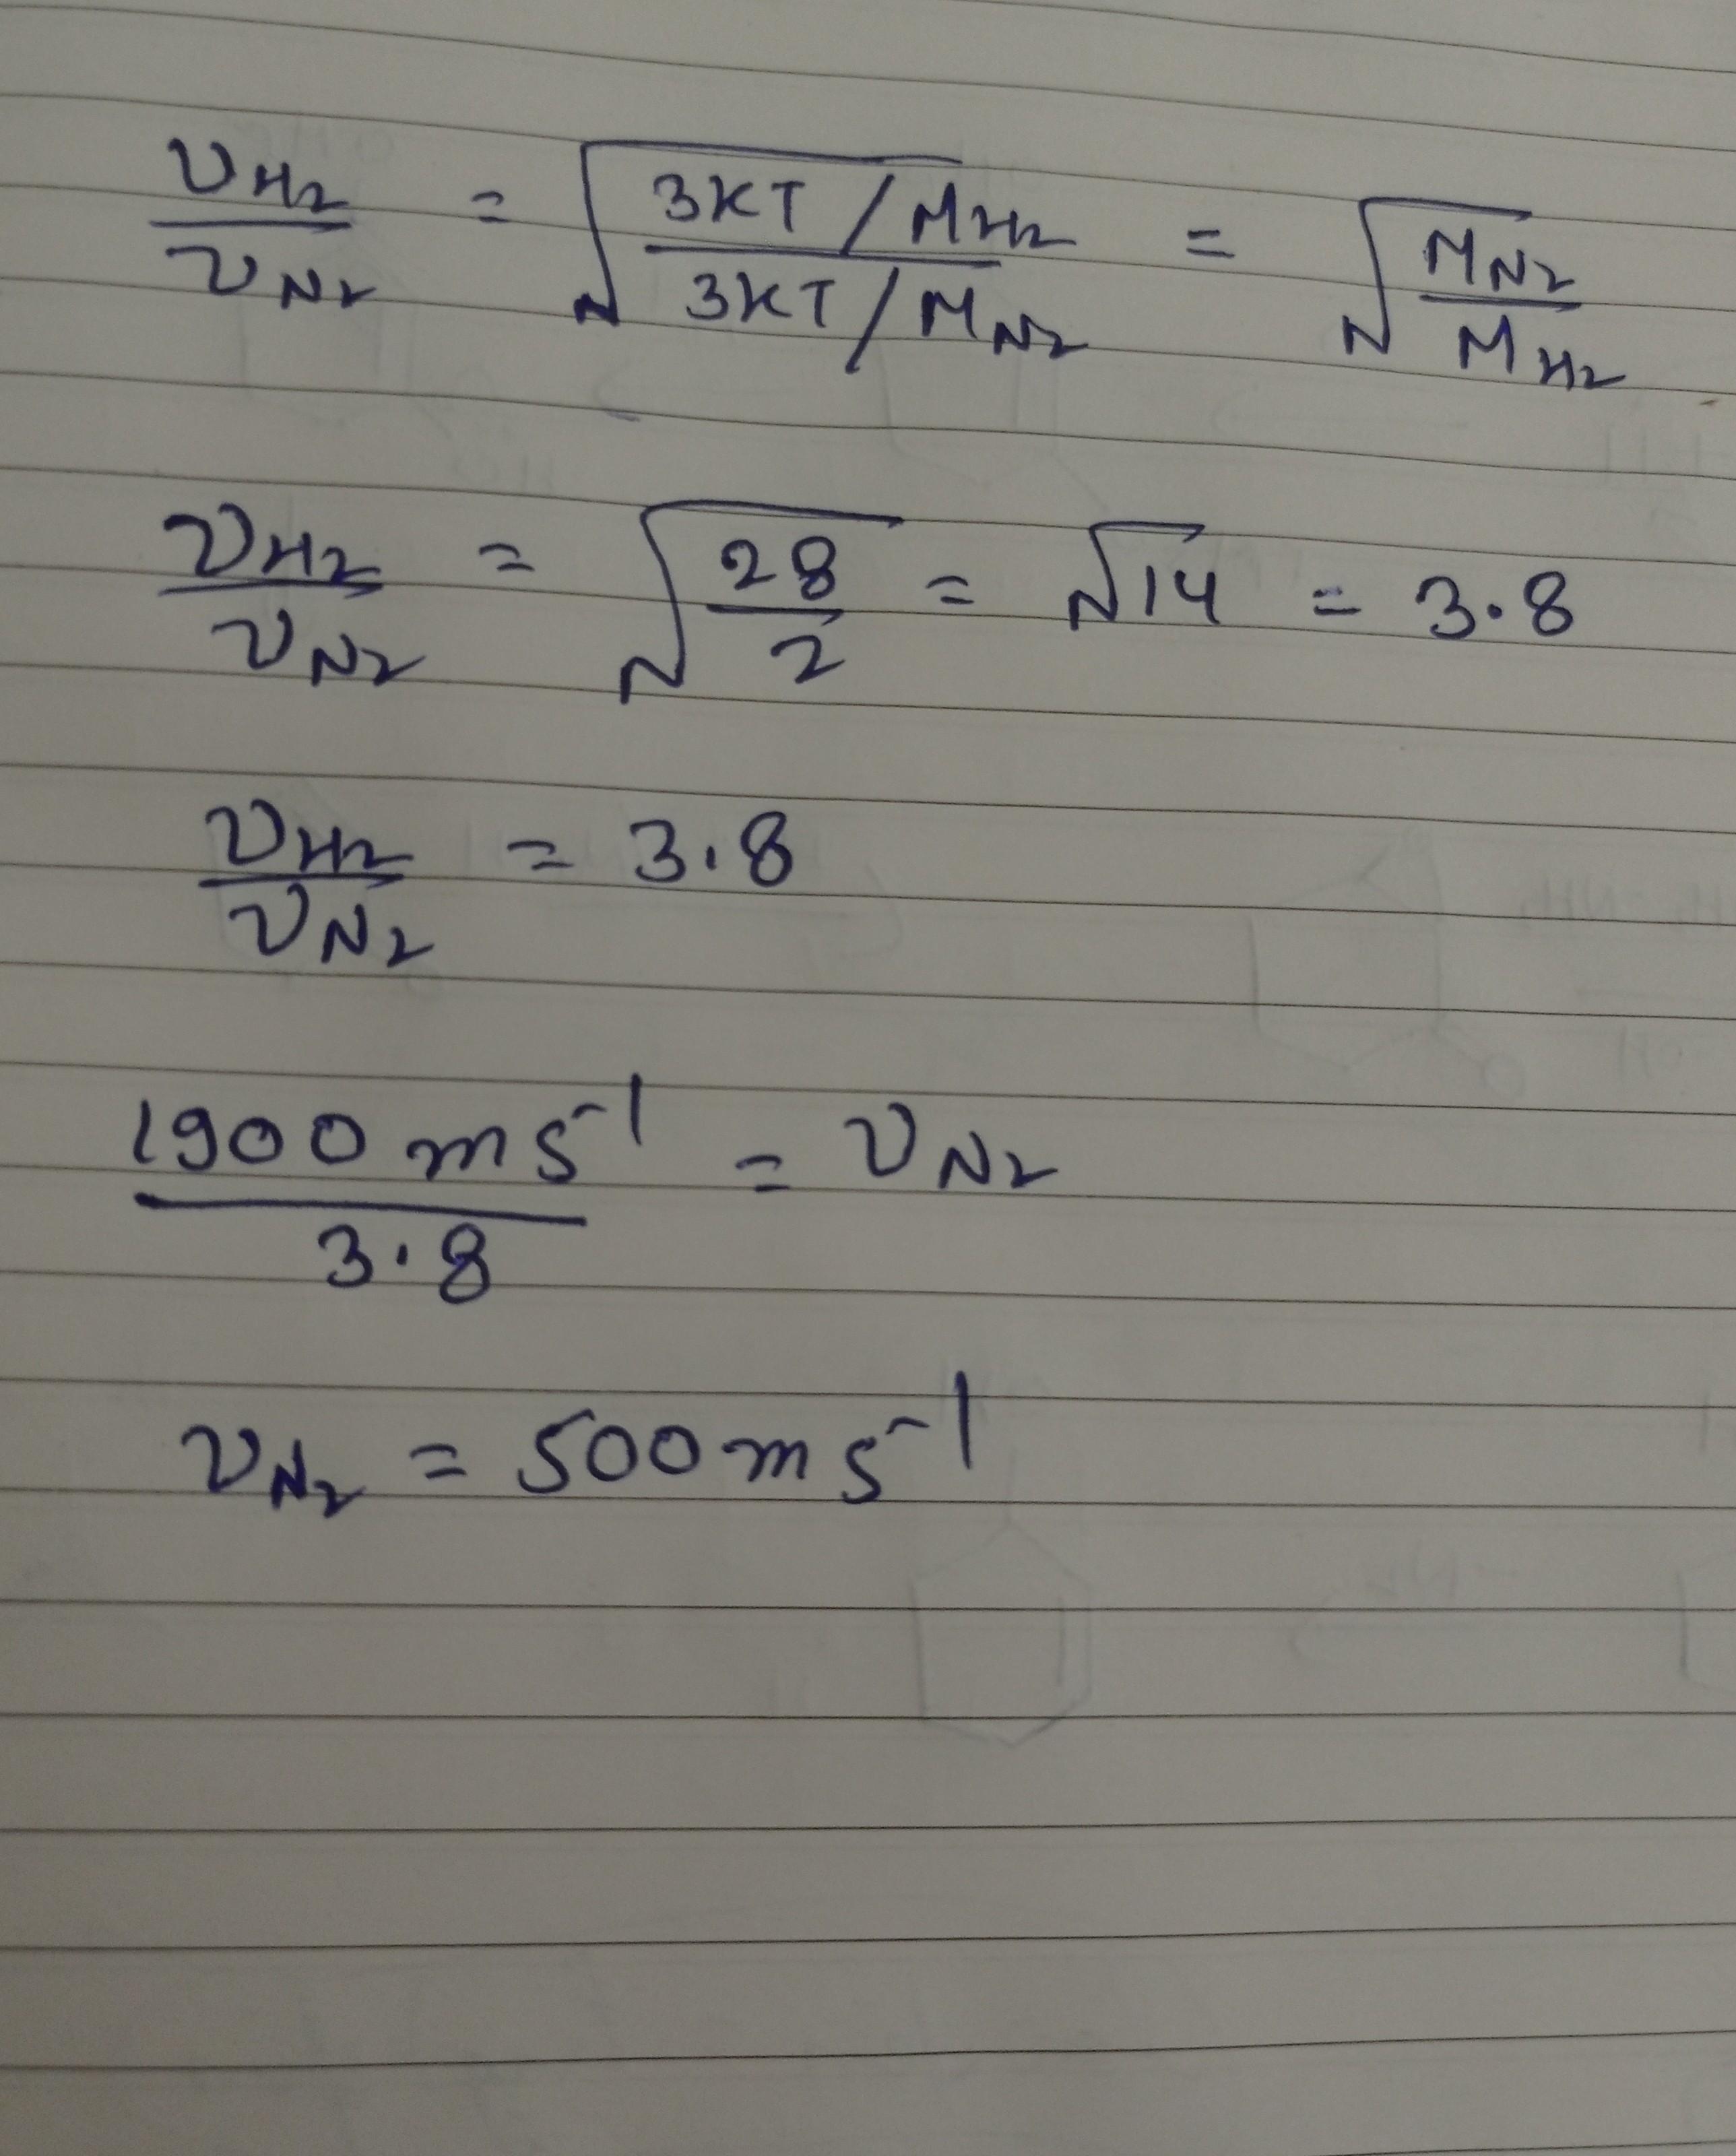 υH₂/υN₂ = √((3KT/MH₂)/(3KT/MN₂)) = √(MN₂/MH₂)
υH₂/υN₂ = √(28/2) = √14 = 3.8
υH₂/υN₂ = 3.8
1900 m s⁻¹/3.8 = υN₂
υN₂ = 500 m s⁻¹